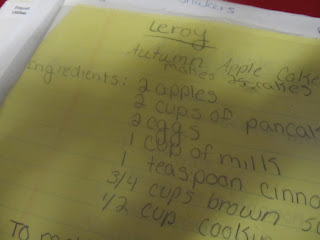 shakers
Leroy
Autumn Apple Cake
makes 25 cakes
Ingredients:
2 apples
2 cups of pancak
2 eggs
1 cup of mills
1 teaspoon cinno
3/4 cups brown su
1/2 cup cookin
To ma